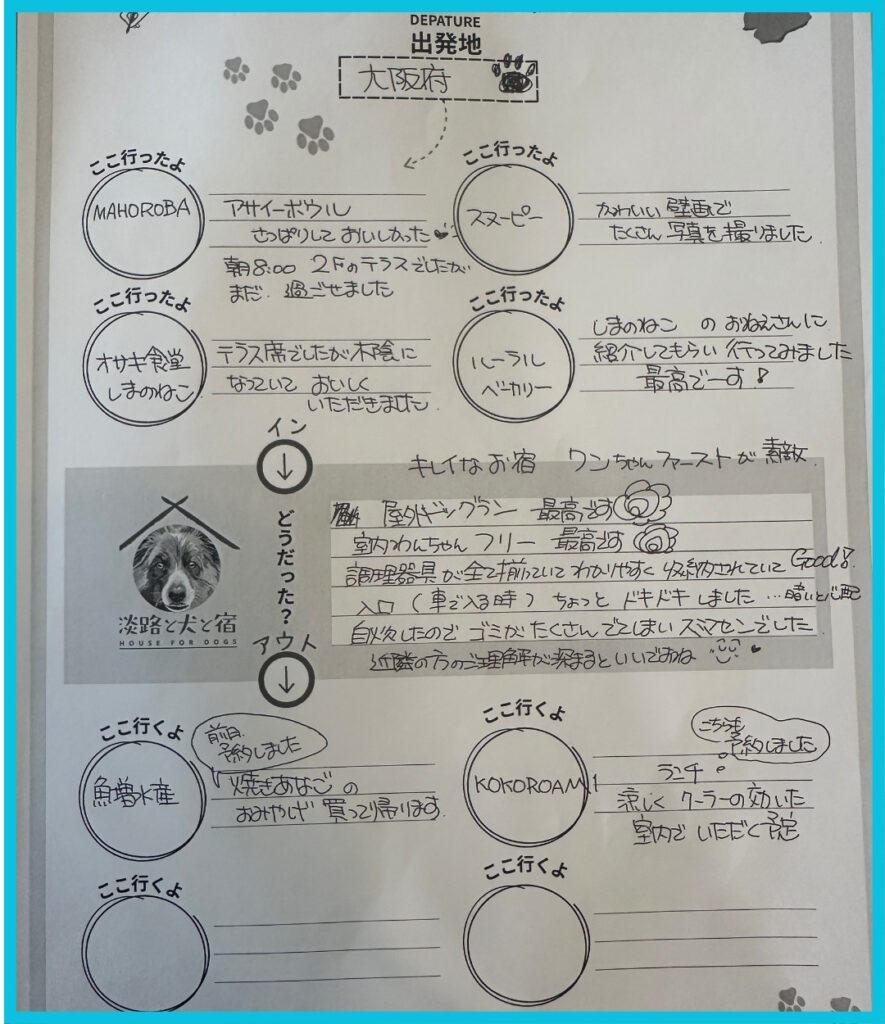 DEPATURE
出発地
大阪府
ここ行ったよ
MAHOROBA
アサイーボウル
さっぱりして おいしかった
朝8:00 2Fのテラスでしたが
まだ 過ごせました
ここ行ったよ
スヌーピー
かわいい 壁画で
たくさん 写真を撮りました
ここ行ったよ
オサキ食堂
しまのねこ
テラス席でしたが木陰に
なっていて おいしく
いただきました
ここ行ったよ
ルーラル
ベーカリー
しまのねこ の おねえさんに
紹介してもらい 行ってみました
最高でーす!
イン
どうだった?
アウト
淡路と犬と宿
HOUSE FOR DOGS
キレイなお宿 ワンちゃんファーストが 素敵
屋外ドッグラン 最高です
室内わんちゃん フリー 最高です
調理器具が全て揃っていて わかりやすく 収納されていて Good!
入口 (車で入る時) ちょっと ドキドキ しました …暗いと心配
自炊したので ゴミが たくさん でてしまい スミマセンでした
近隣の方のご理解が深まるといいですね
ここ行くよ
前日
予約しました
魚増水産
焼きあなごの
おみやげ 買って帰ります
ここ行くよ
こちらも
予約しました
KOKOROAMI
ランチ
涼しく クーラーの効いた
室内で いただく予定
ここ行くよ
ここ行くよ